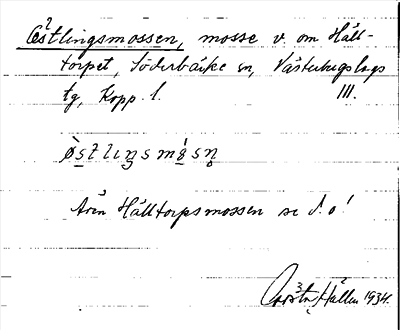 Östlingsmossen, mosse v. om Häll-
torpet, Söderbärke sn, Västerbergslags
tg, Kopp. l. III.
ò̀stliŋsmósn̥
Även Hälltorpsmossen se d. o!
Hallen 1934.